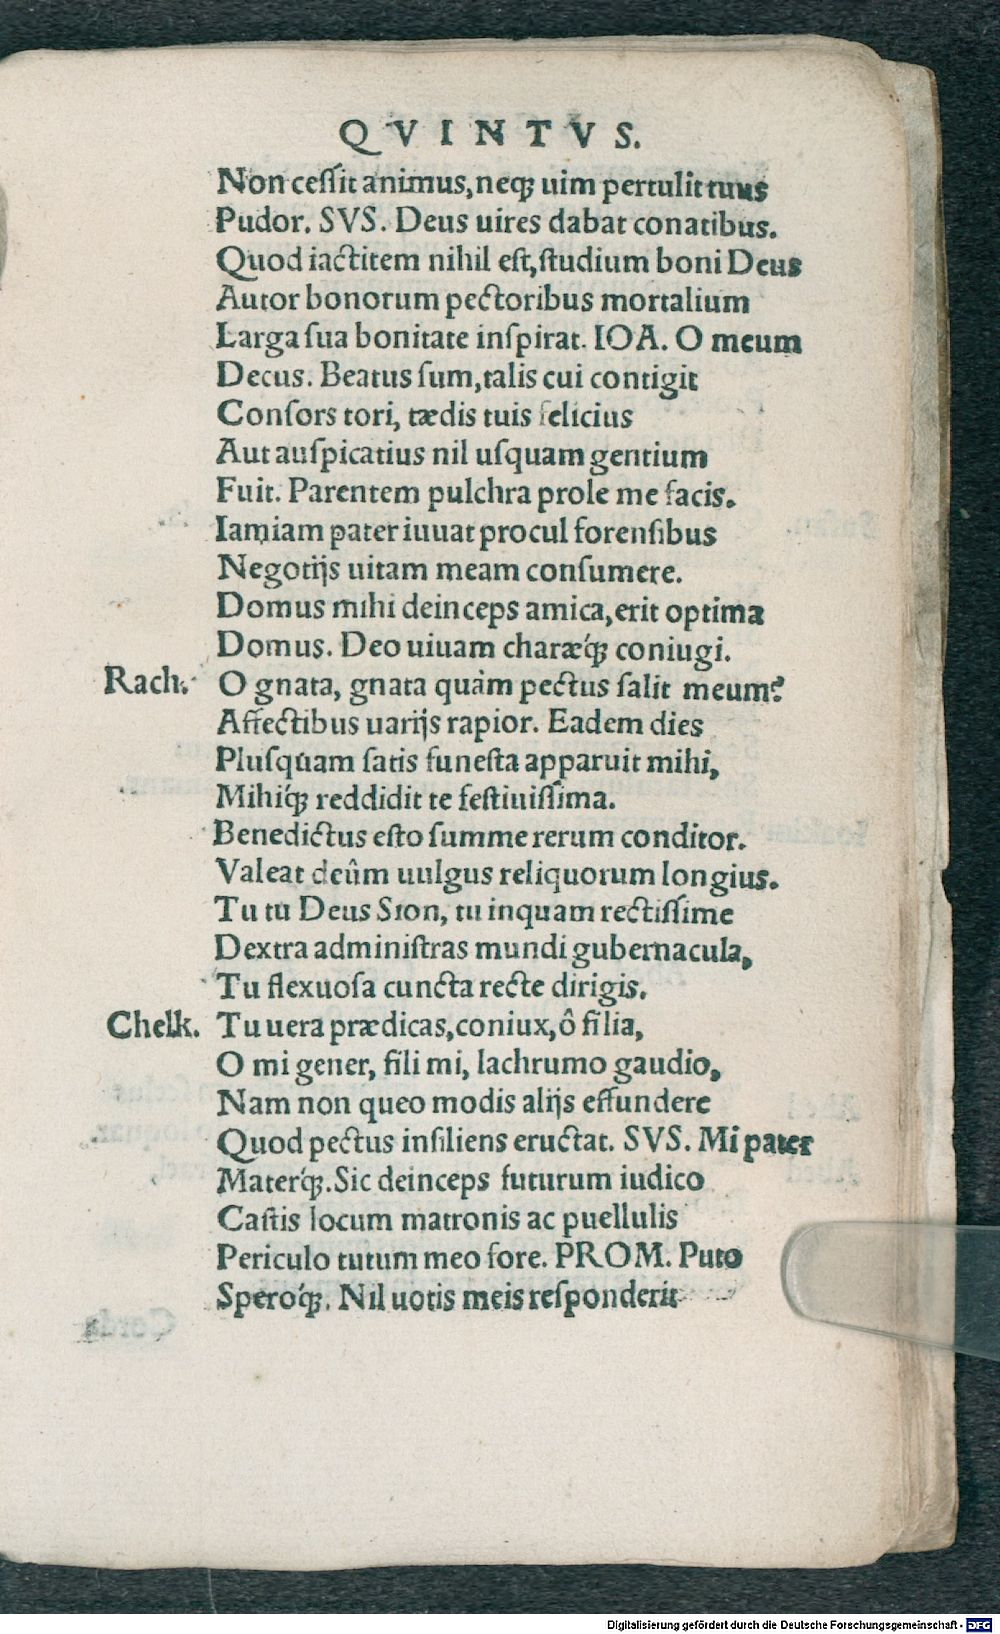 QVINTVS.
Non cessit animus, neqꝫ uim pertulit tuus
Pudor. SVS. Deus uires dabat conatibus.
Quod iactitem nihil est, studium boni Deus
Autor bonorum pectoribus mortalium
Larga sua bonitate inspirat. IOA. O meum
Decus. Beatus sum, talis cui contigit
Consors tori, tædis tuis felicius
Aut auspicatius nil usquam gentium
Fuit. Parentem pulchra prole me facis.
Iamiam pater iuuat procul forensibus
Negotijs uitam meam consumere.
Domus mihi deinceps amica, erit optima
Domus. Deo uiuam charæq́ꝫ coniugi.
Rach. O gnata, gnata quàm pectus salit meum?
Affectibus uarijs rapior. Eadem dies
Plusquam satis funesta apparuit mihi,
Mihiq́ꝫ reddidit te festiuissima.
Benedictus esto summe rerum conditor.
Valeat deûm uulgus reliquorum longius.
Tu tu Deus Sion, tu inquam rectissime
Dextra administras mundi gubernacula,
Tu flexuosa cuncta recte dirigis.
Chelk. Tu uera prædicas, coniux, ô filia,
O mi gener, fili mi, lachrumo gaudio,
Nam non queo modis alijs effundere
Quod pectus insiliens eructat. SVS. Mi pater
Materq́ꝫ. Sic deinceps futurum iudico
Castis locum matronis ac puellulis
Periculo tutum meo fore. PROM. Puto
Speroq́ꝫ. Nil uotis meis responderit
Digitalisierung gefördert durch die Deutsche Forschungsgemeinschaft - DFG